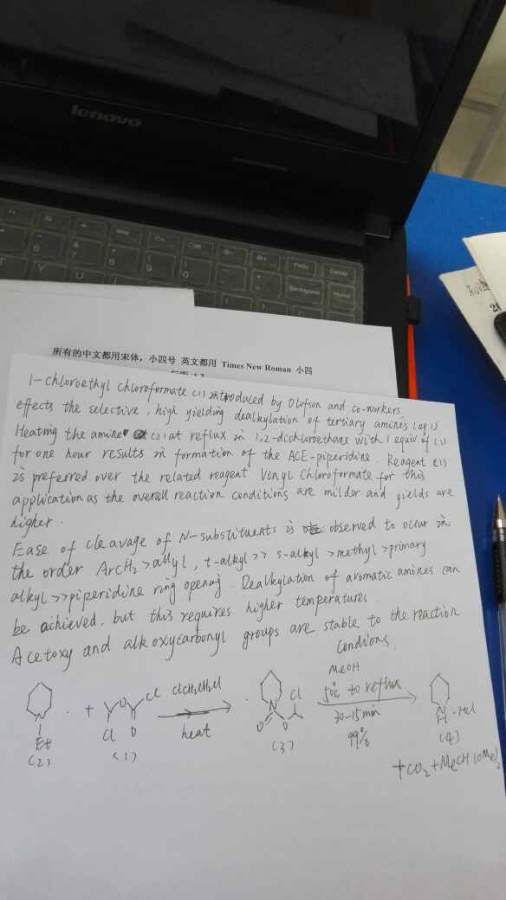 lenovo
所有的中文都用宋体，小四号 英文都用 Times New Roman 小四
1-Chloroethyl chloroformate (1) introduced by Olofson and co-workers,
effects the selective, high yielding dealkylation of tertiary amines (eq 1)
Heating the amine (2) at reflux in 1,2-dichloroethane with 1 equiv of (1)
for one hour results in formation of the ACE-piperidine Reagent (1)
is preferred over the related reagent Vinyl Chloroformate for this
application as the overall reaction conditions are milder and yields are
higher.
Ease of cleavage of N-substituents is observed to occur in
the order ArCH2 > allyl, t-alkyl >> s-alkyl > methyl > primary
alkyl >> piperidine ring opening. Dealkylation of aromatic amines can
be achieved, but this requires higher temperatures
Acetoxy and alkoxycarbonyl groups are stable to the reaction
Conditions
N
Et
(2)
+
O
Cl
Cl
O
(1)
ClCH2CH2Cl
heat
N
Cl
O
O
(3)
MeOH
50°C to reflux
30-15min
99%
N
H
·HCl
(4)
+CO2+MeCH(OMe)2